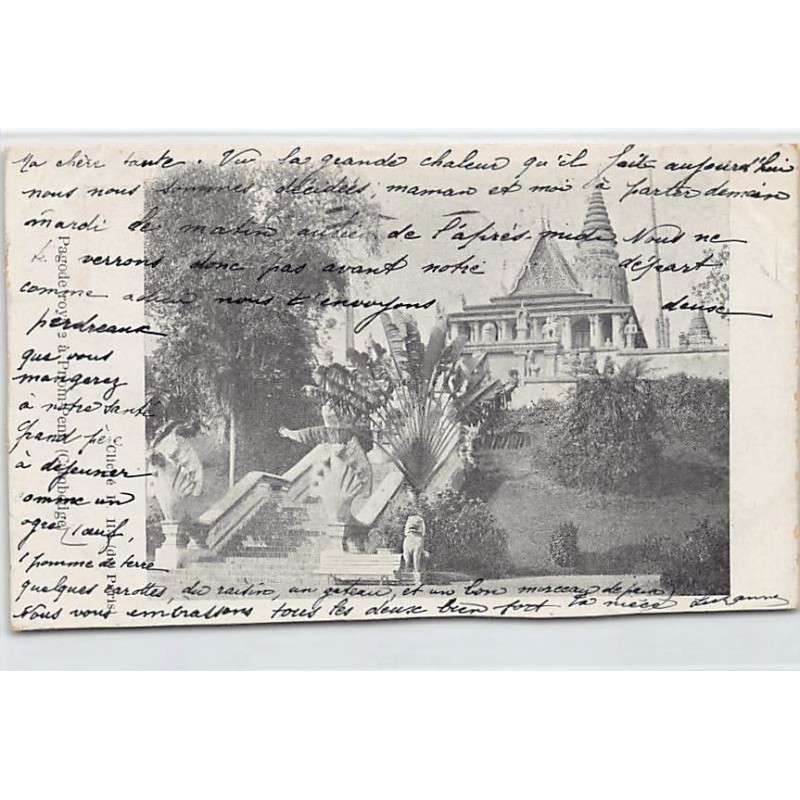 Ma chère tante. Vu la grande chaleur qu'il fait aujourd'hui
nous nous sommes décidées, maman et moi à partir demain
mardi de matin au lieu de l'après-midi. Nous ne
verrons donc pas avant notre départ
comme nous t'envoyons deux
perdreaux
que vous
mangerez
à notre santé
Grand père
à déjeuner
comme un
ogre 1 œuf,
1 pomme de terre
quelques carottes, du raisin, un gateau, et un bon morceau de pain
Nous vous embrassons tous les deux bien fort ta nièce Suzanne
Pagode royale à Pnom-Penh (Cambodge)
Cliché Paris